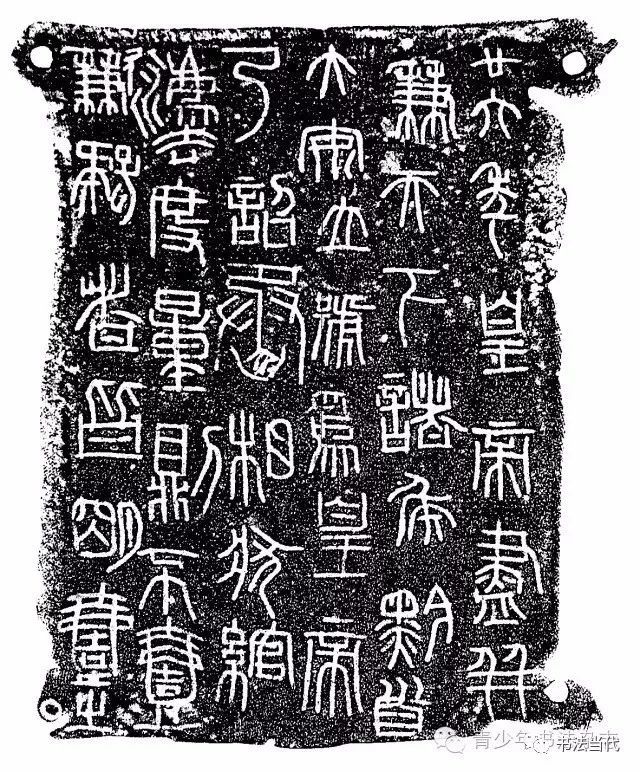 廿六年皇帝盡并
兼天下諸矦黔首
大安立號爲皇帝
乃詔丞相狀綰
灋度量則不壹
歉疑者皆明壹之
青少年书
书法当代